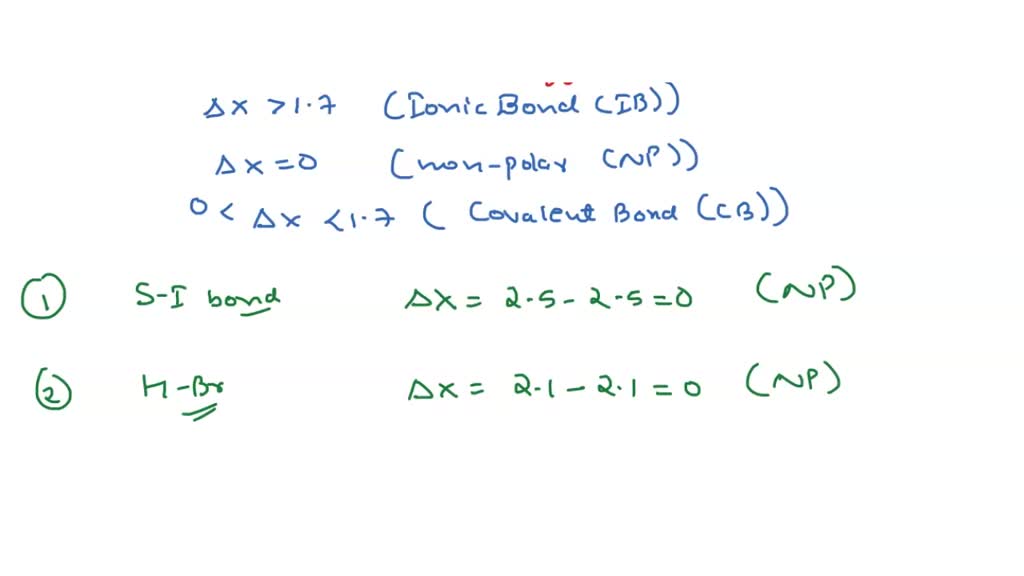 Δx > 1.7 (Ionic Bond (IB))
Δx = 0 (non-polar (NP))
0 < Δx < 1.7 ( Covalent Bond (CB))
① S-I bond Δx = 2.5 - 2.5 = 0 (NP)
② H-Br Δx = 2.1 - 2.1 = 0 (NP)